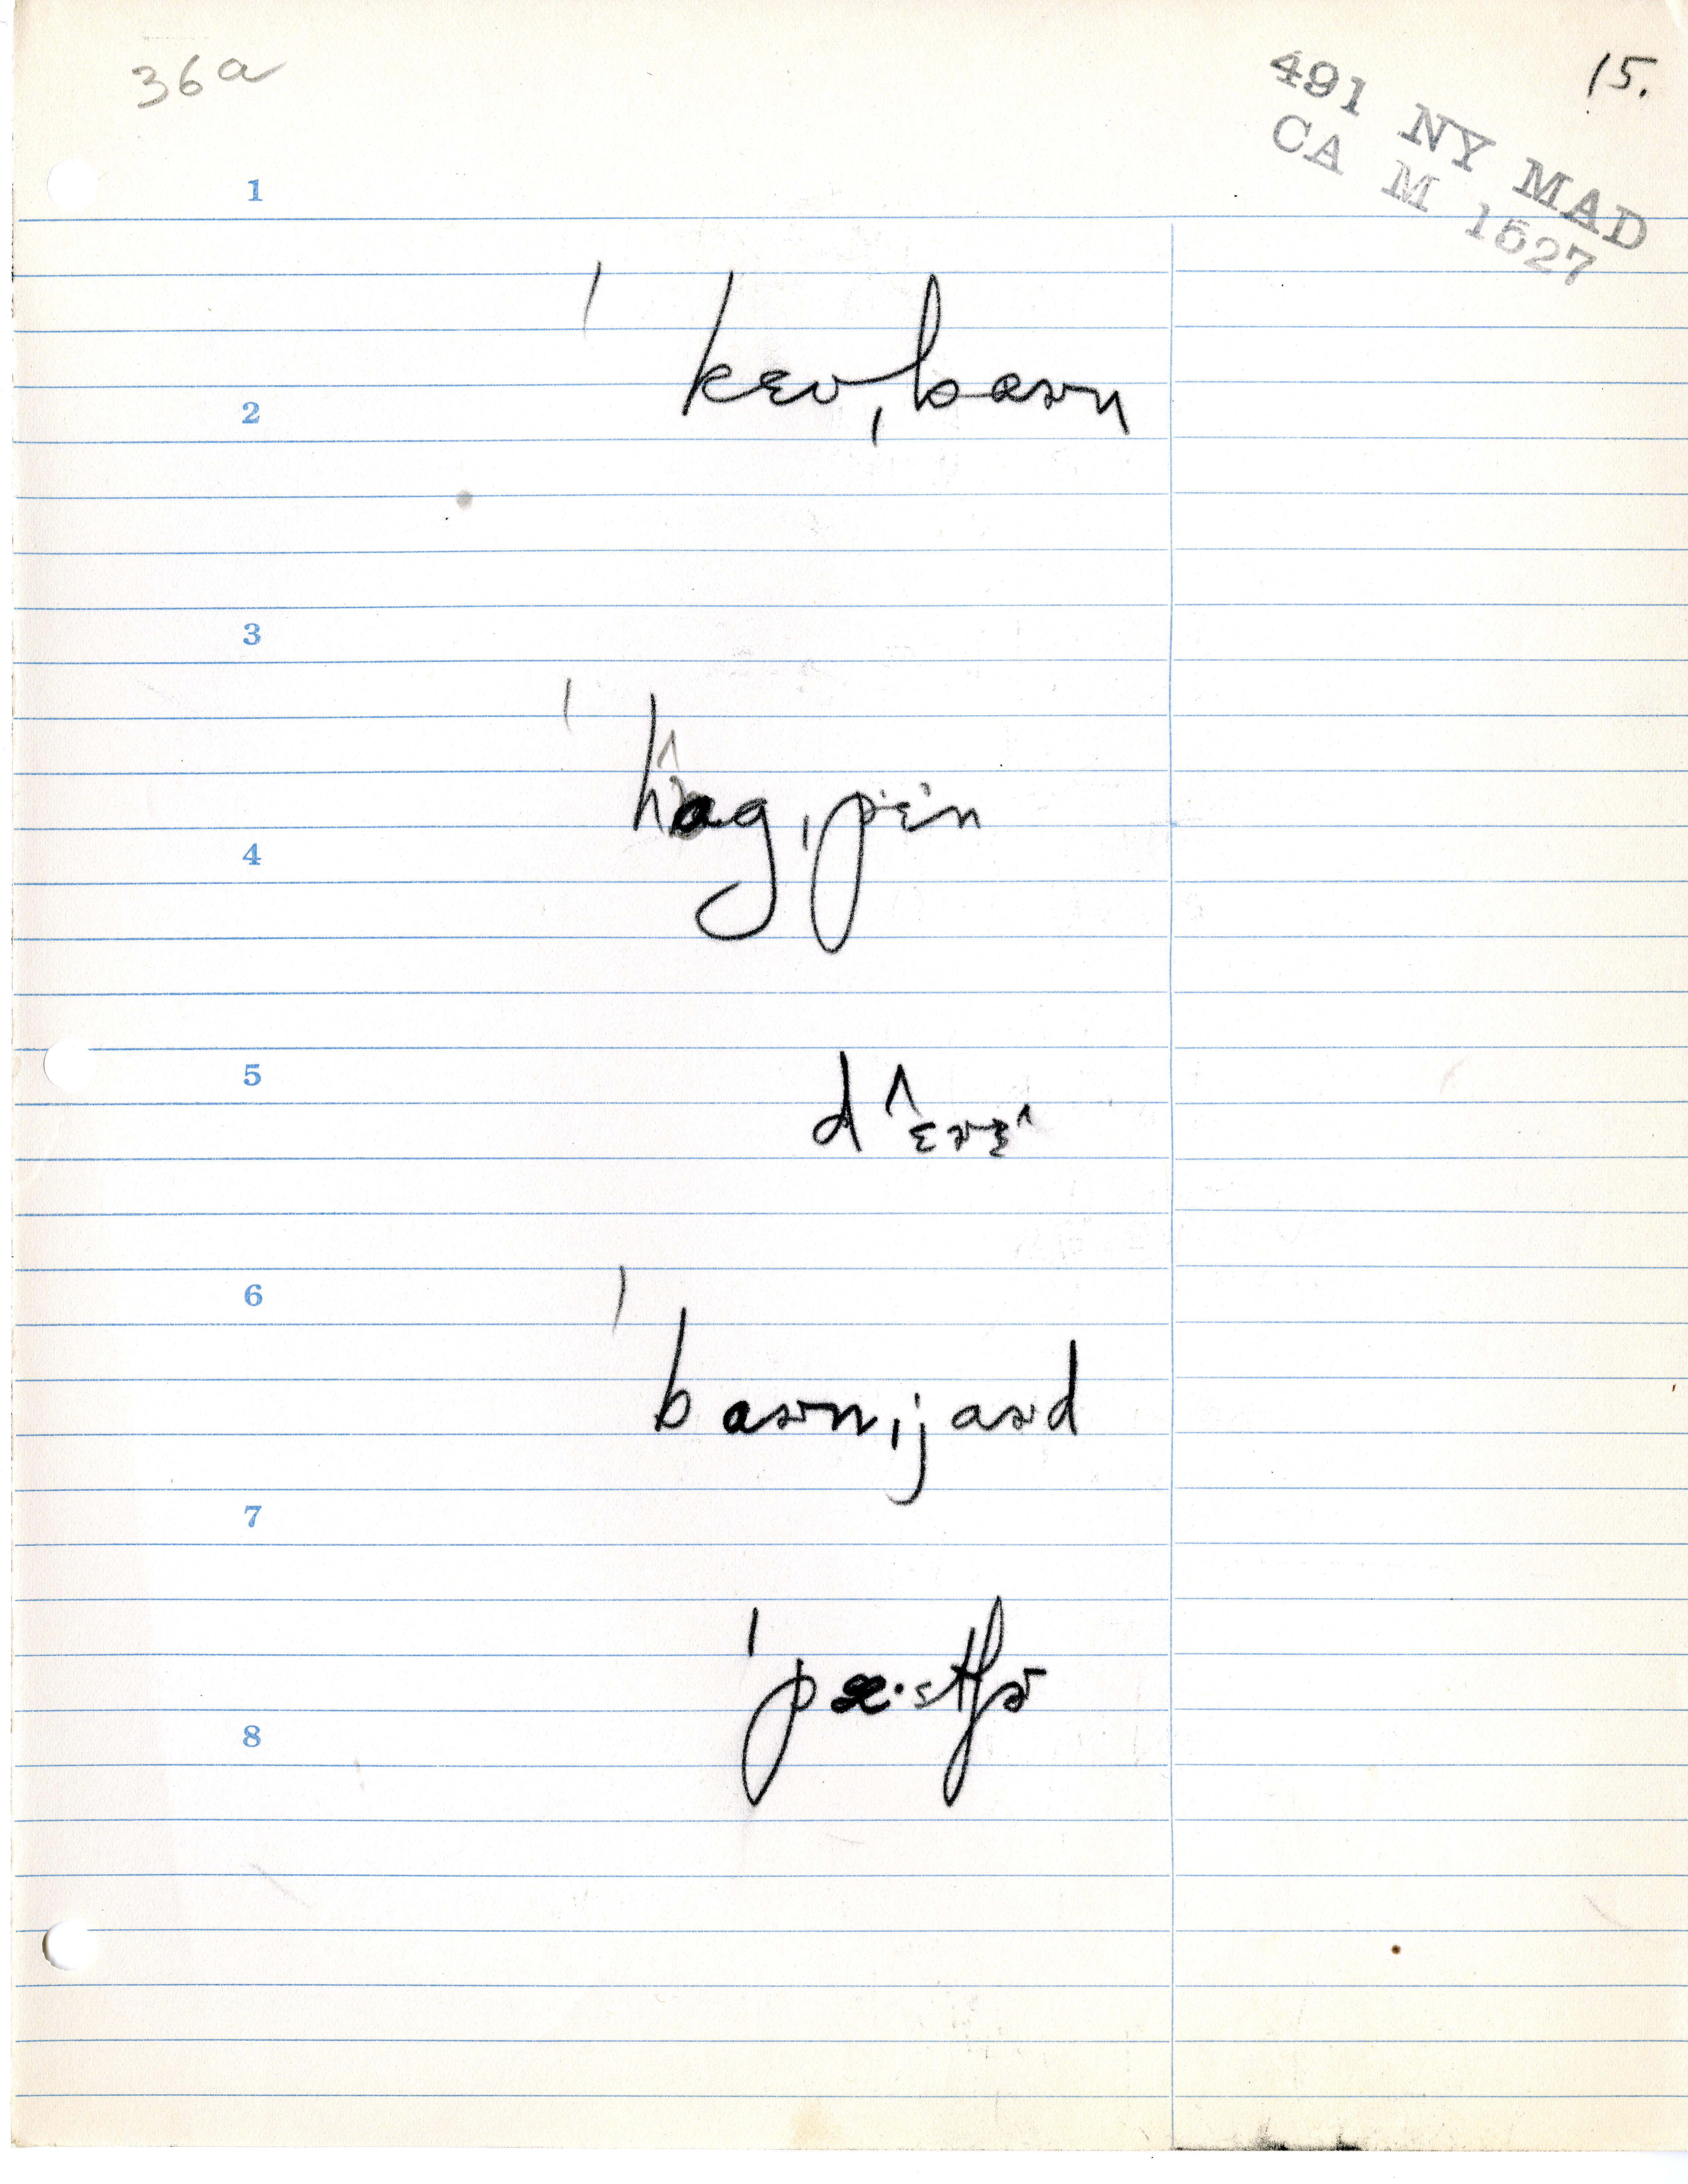 36a
15.
491 NY MAD
CA M 1527
1
ˈkɛʊˌbaɚn
2
3
ˈhɑ^gˌpɛn
4
5
d^ɛɚɛ^
6
ˈbaɚnˌjaɚd
7
ˈpæ·stʃɚ
8